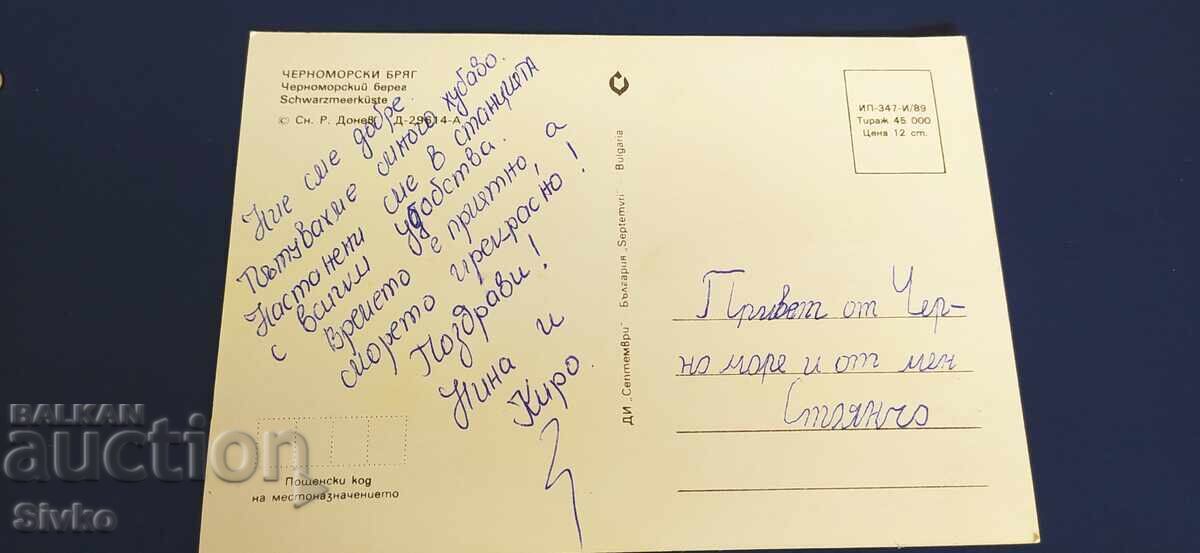 ЧЕРНОМОРСКИ БРЯГ
Черноморский берег
Schwarzmeerküste
© Сн. Р. Донев Д-29614-А
Ние сме добре
Пътувахме много хубаво.
Настанени сме в станцията
с всички удобства.
Времето е приятно, а
морето прекрасно!
Поздрави!
Нина и
Киро
Пощенски код
на местоназначението
ДИ „Септември" България „Septemvri" Bulgaria
ИП-347-И/89
Тираж 45.000
Цена 12 ст.
Привет от Чер-
но море и от мен
Стоянчо
BALKAN
auction
Sivko